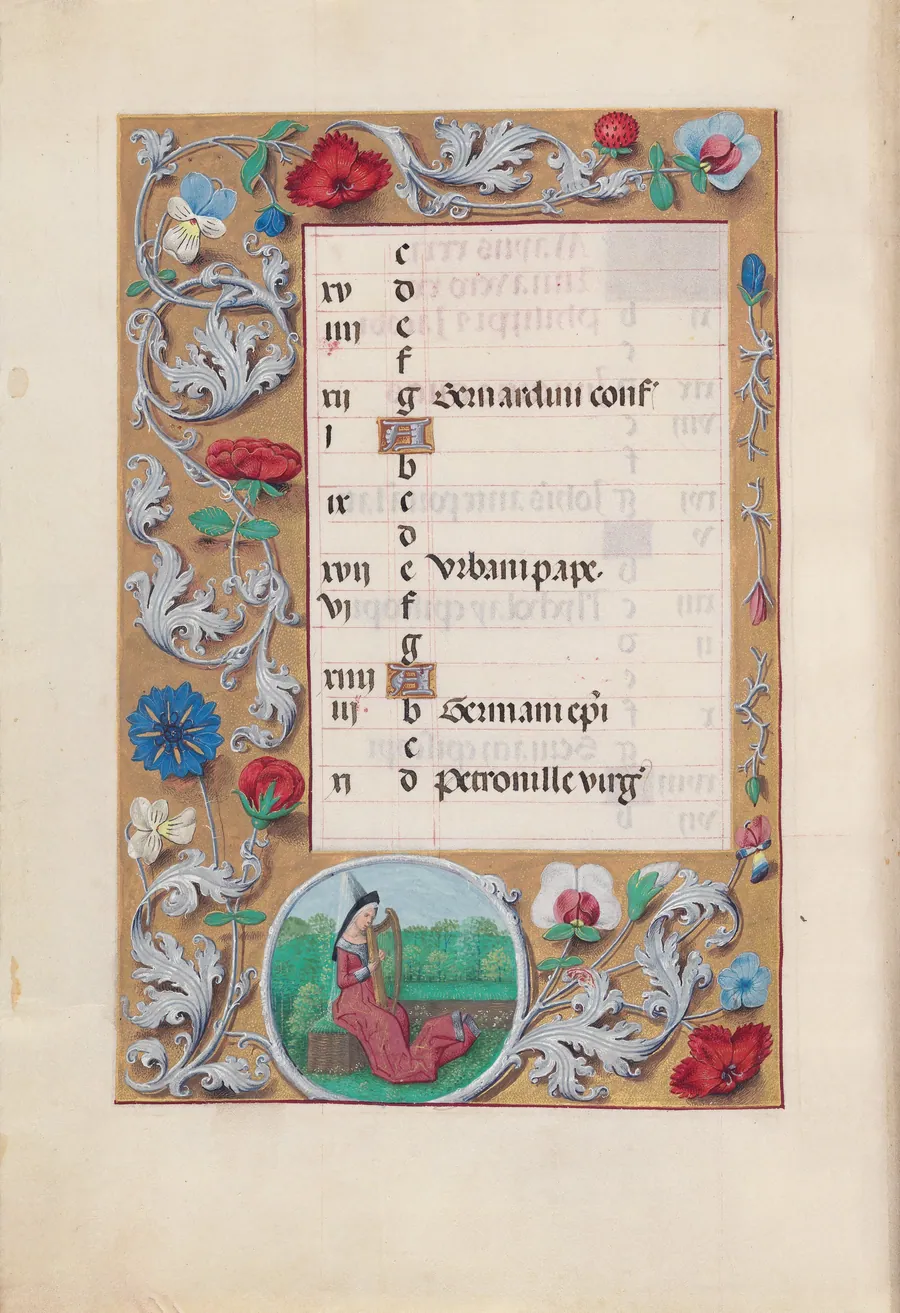 c
xv d
iiij e
f
xij g Bernardini conf'
j A
b
ix c
d
xvij e Vrbani pape.
vj f
g
xiiij A
iij b Germani ep̄i
c
xj d Petronille virg'